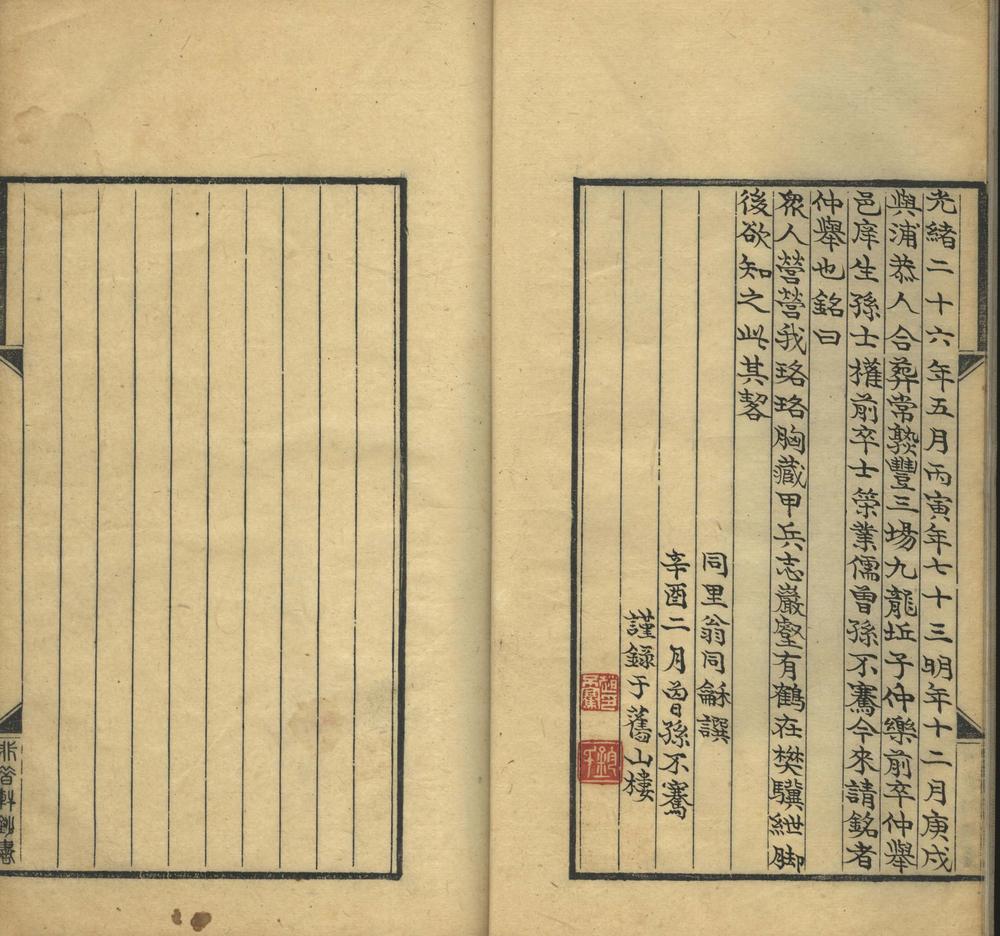 光緒二十六年五月丙寅年七十三明年十二月庚戌
與浦恭人合葬常熟豐三場九龍坵子仲樂前卒仲舉
邑庠生孫士權前卒士榮業儒曾孫不騫今來請銘者
仲舉也銘曰
衆人營營我珞珞胸藏甲兵志巖壑有鶴在樊驥紲脚
後欲知之此其
同里翁同龢譔
辛酉二月曾孫不騫
謹錄于舊山樓
趙印不騫
鈔書